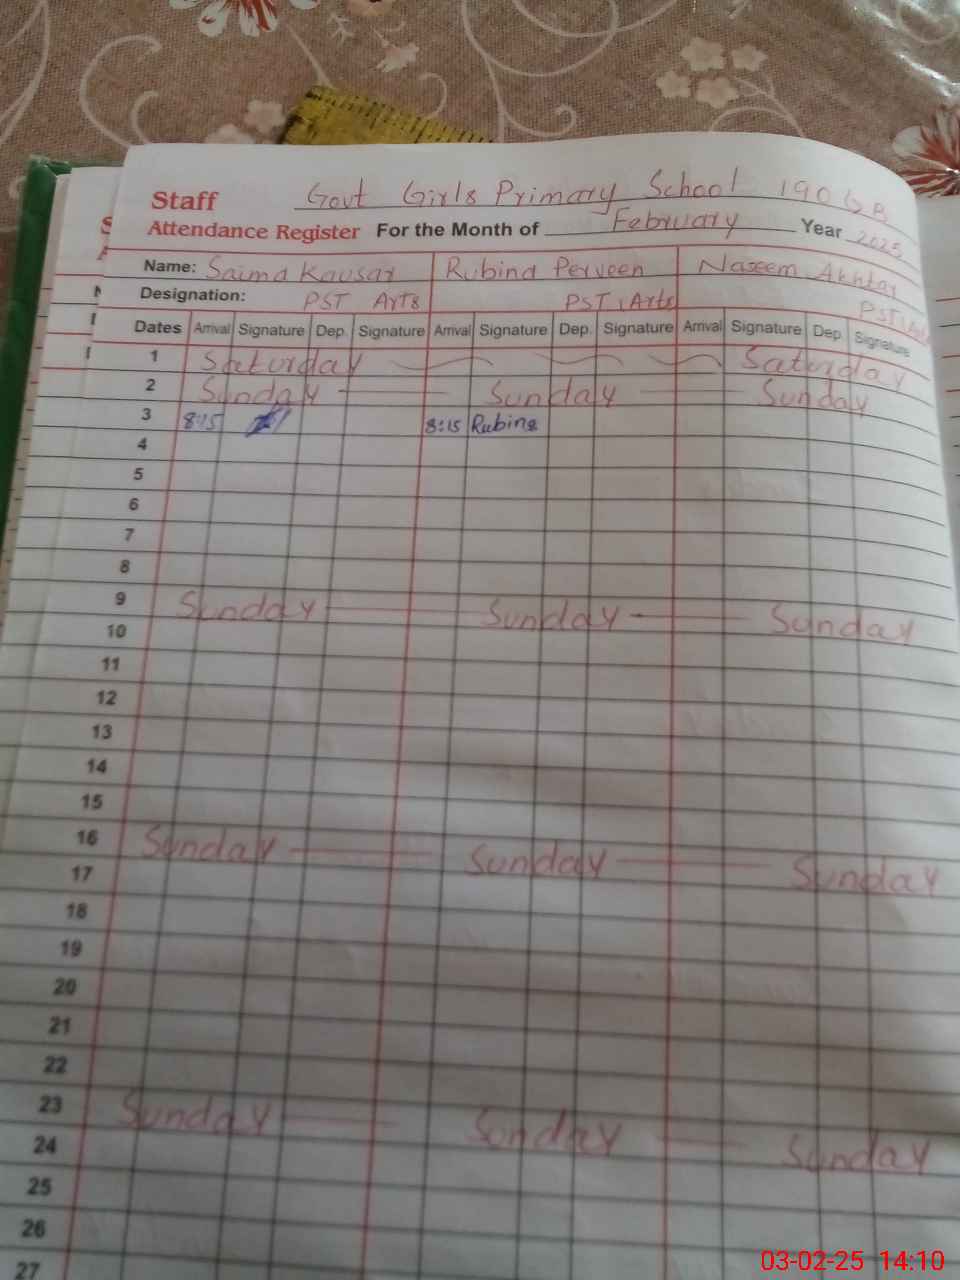 Staff Govt Girls Primary School 190 GB
Attendance Register For the Month of February Year 2025
Name: Saima Kausar Rubina Perveen Naseem Akhtar
Designation: PST Arts PST, Arts PST, Arts
Dates Arrival Signature Dep. Signature Arrival Signature Dep. Signature Arrival Signature Dep. Signature
1 Saturday Saturday
2 Sunday Sunday Sunday
3 8:15 8:15 Rubina
4
5
6
7
8
9 Sunday Sunday Sunday
10
11
12
13
14
15
16 Sunday Sunday Sunday
17
18
19
20
21
22
23 Sunday Sunday Sunday
24
25
26
27
03-02-25 14:10